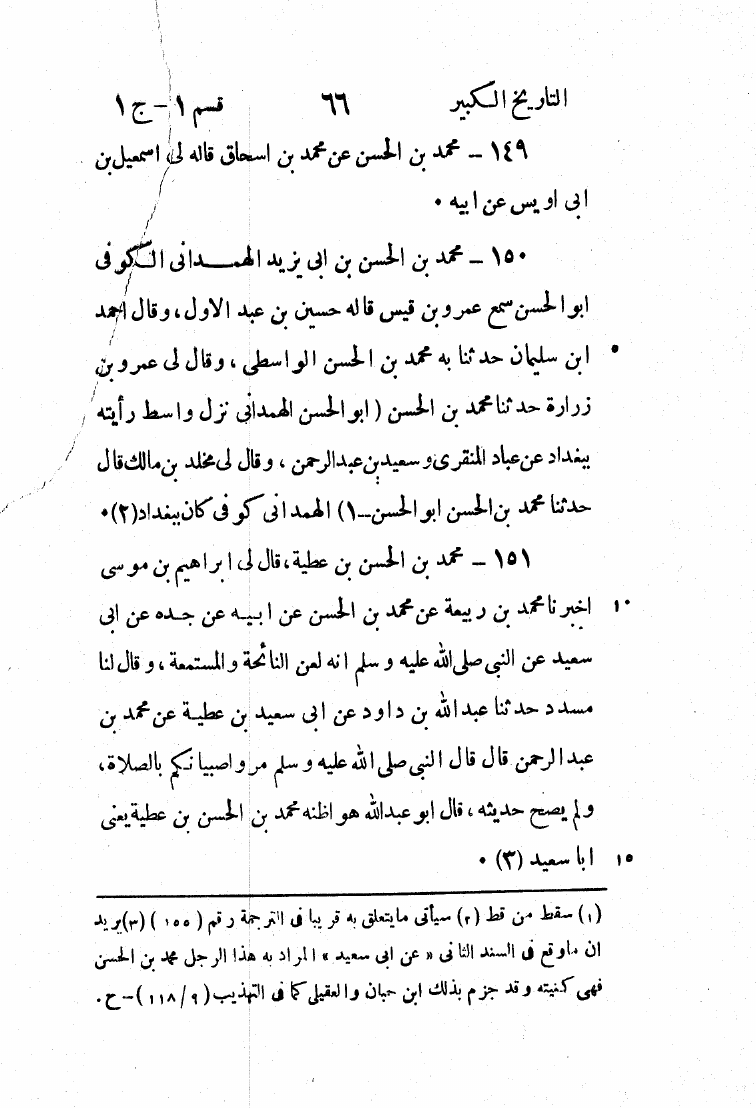 التاريخ الكبير ٦٦ قسم ١ – ج ١
١٤٩ – محمد بن الحسن عن محمد بن اسحاق قاله لى اسمعيل بن
ابى اويس عن ابيه ٠
١٥٠ – محمد بن الحسن بن ابى يزيد الهمدانى الكوفى
ابو الحسن سمع عمرو بن قيس قاله حسين بن عبد الاول، وقال احمد
٥ ابن سليمان حدثنا به محمد بن الحسن الواسطى، وقال لى عمرو بن
زرارة حدثنا محمد بن الحسن (ابو الحسن الهمدانى نزل واسط رأيته
ببغداد عن عباد المنقرى وسعيد بن عبدالرحمن، وقال لى مخلد بن مالك قال
حدثنا محمد بن الحسن ابو الحسن–١) الهمدانى كوفى كان ببغداد(٢)٠
١٥١ – محمد بن الحسن بن عطية، قال لى ابراهيم بن موسى
١٠ اخبرنا محمد بن ربيعة عن محمد بن الحسن عن ابيه عن جده عن ابى
سعيد عن النبى صلى الله عليه وسلم انه لعن النائحة والمستمعة، وقال لنا
مسدد حدثنا عبد الله بن داود عن ابى سعيد بن عطية عن محمد بن
عبد الرحمن قال قال النبى صلى الله عليه وسلم مروا صبيانكم بالصلاة،
ولم يصح حديثه، قال ابو عبدالله هو اظنه محمد بن الحسن بن عطية يعنى
١٥ ابا سعيد (٣) ٠
(١) سقط من قط (٢) سيأتى ما يتعلق به قريبا فى الترجمة رقم (١٥٥) (٣) يريد
ان ما وقع فى السند الثانى « عن ابى سعيد » المراد به هذا الرجل محمد بن الحسن
فهى كنيته وقد جزم بذلك ابن حبان والعقيلى كما فى التهذيب (٩/ ١١٨) – ح ٠